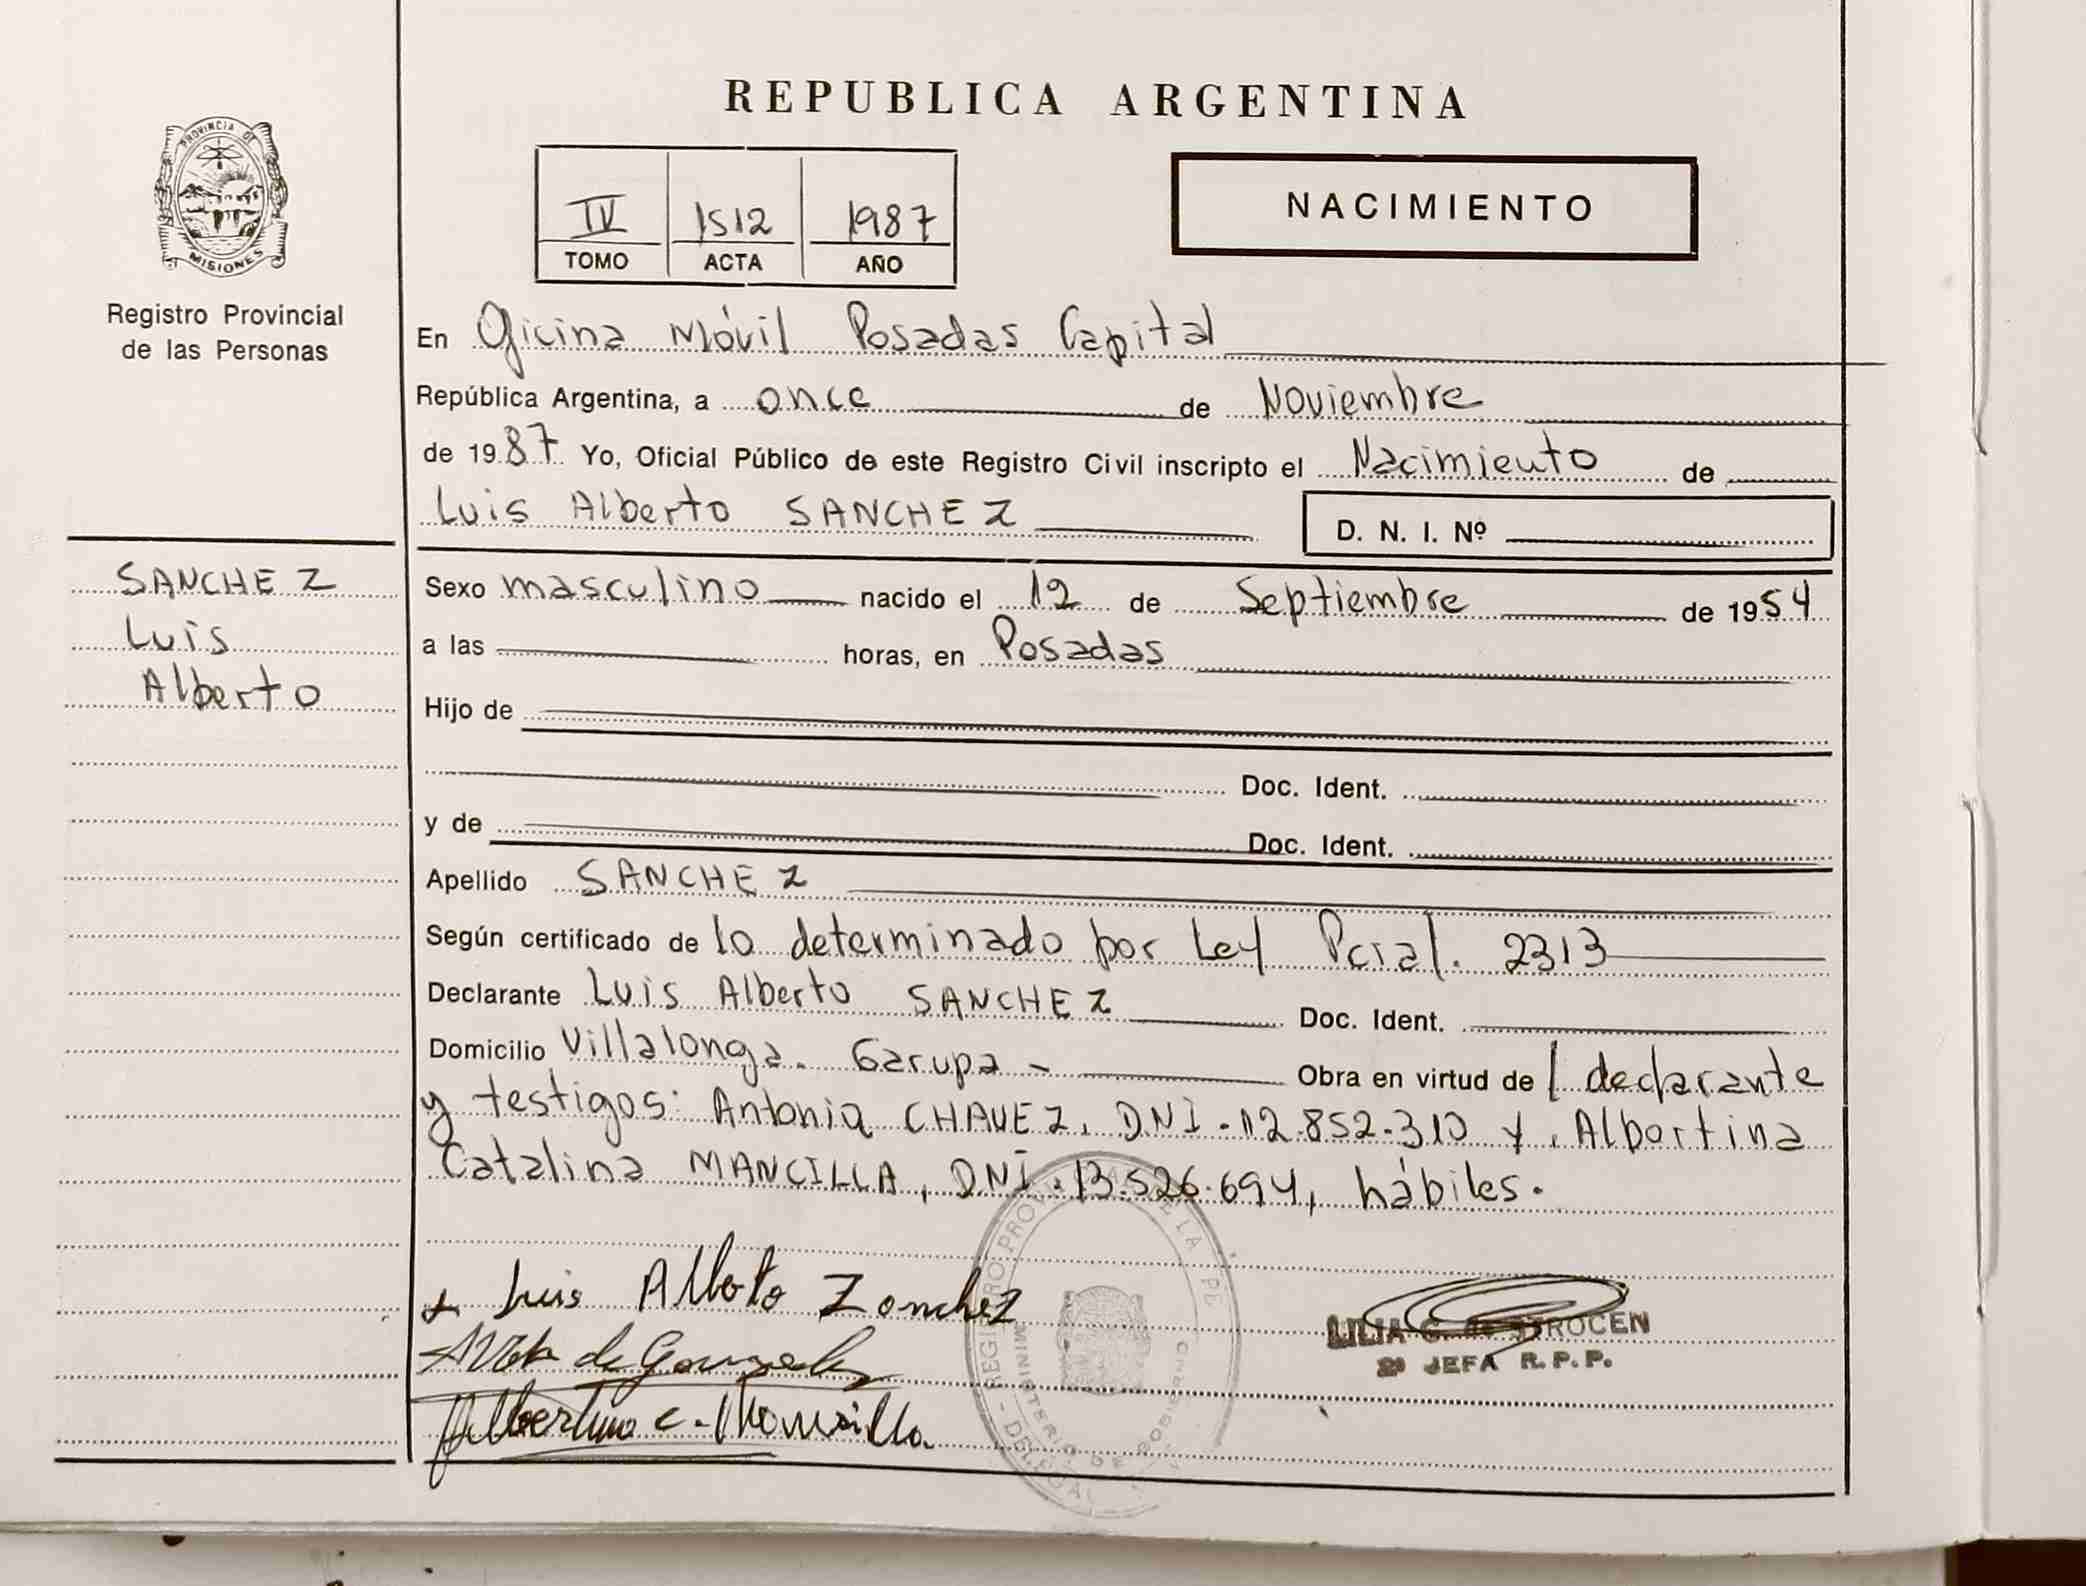 REPUBLICA ARGENTINA
PROVINCIA DE
MISIONES
Registro Provincial
de las Personas
IV 1512 1987
TOMO ACTA AÑO
NACIMIENTO
En Oficina Móvil Posadas Capital
República Argentina, a once de Noviembre
de 1987 Yo, Oficial Público de este Registro Civil inscripto el Nacimiento de
Luis Alberto SANCHEZ D. N. I. Nº
SANCHEZ
Luis
Alberto
Sexo masculino nacido el 12 de Septiembre de 1954
a las horas, en Posadas
Hijo de
Doc. Ident.
y de Doc. Ident.
Apellido SANCHEZ
Según certificado de lo determinado por Ley Pcial. 2313
Declarante Luis Alberto SANCHEZ Doc. Ident.
Domicilio Villalonga. Garupa - Obra en virtud de declarante
y testigos: Antonia CHAVEZ, DNI. 12.852.310 y, Albertina
Catalina MANCILLA, DNI. 13.526.694, hábiles.
Luis Alberto Zanchez
LILIA G. de
2ª JEFA R.P.P.
Albertina C. Mansilla
REGISTRO PROVINCIAL DE LAS PE
MINISTERIO DE GOBIERNO